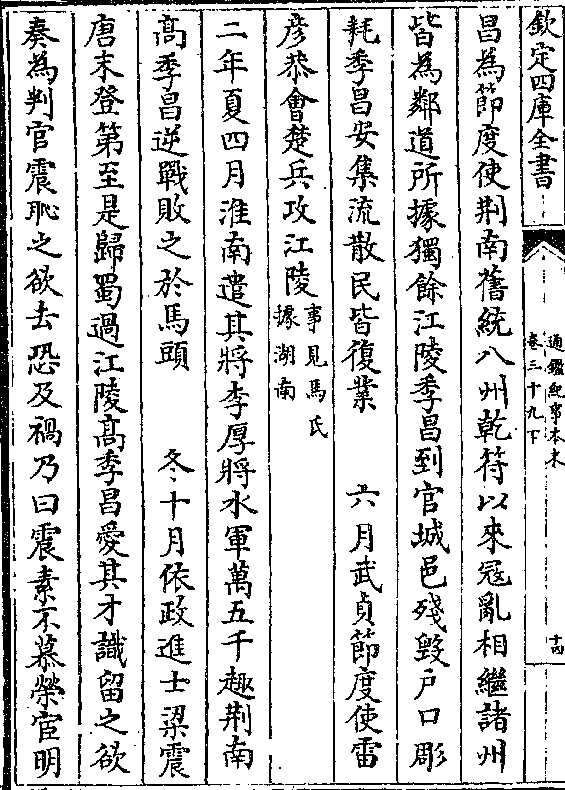 欽定四庫全書
通鑑紀事本末
卷三十九下
十四
昌為節度使荆南舊統八州乾符以來冦亂相繼諸州
皆為鄰道所據獨餘江陵季昌到官城邑殘毁户口彫
耗季昌安集流散民皆復業 六月武貞節度使雷
彦恭會楚兵攻江陵事見馬氏
據湖南
二年夏四月淮南遣其將李厚將水軍萬五千趣荆南
髙季昌逆戰敗之於馬頭 冬十月依政進士梁震
唐末登第至是歸蜀過江陵髙季昌愛其才識留之欲
奏為判官震恥之欲去恐及禍乃曰震素不慕榮宦明